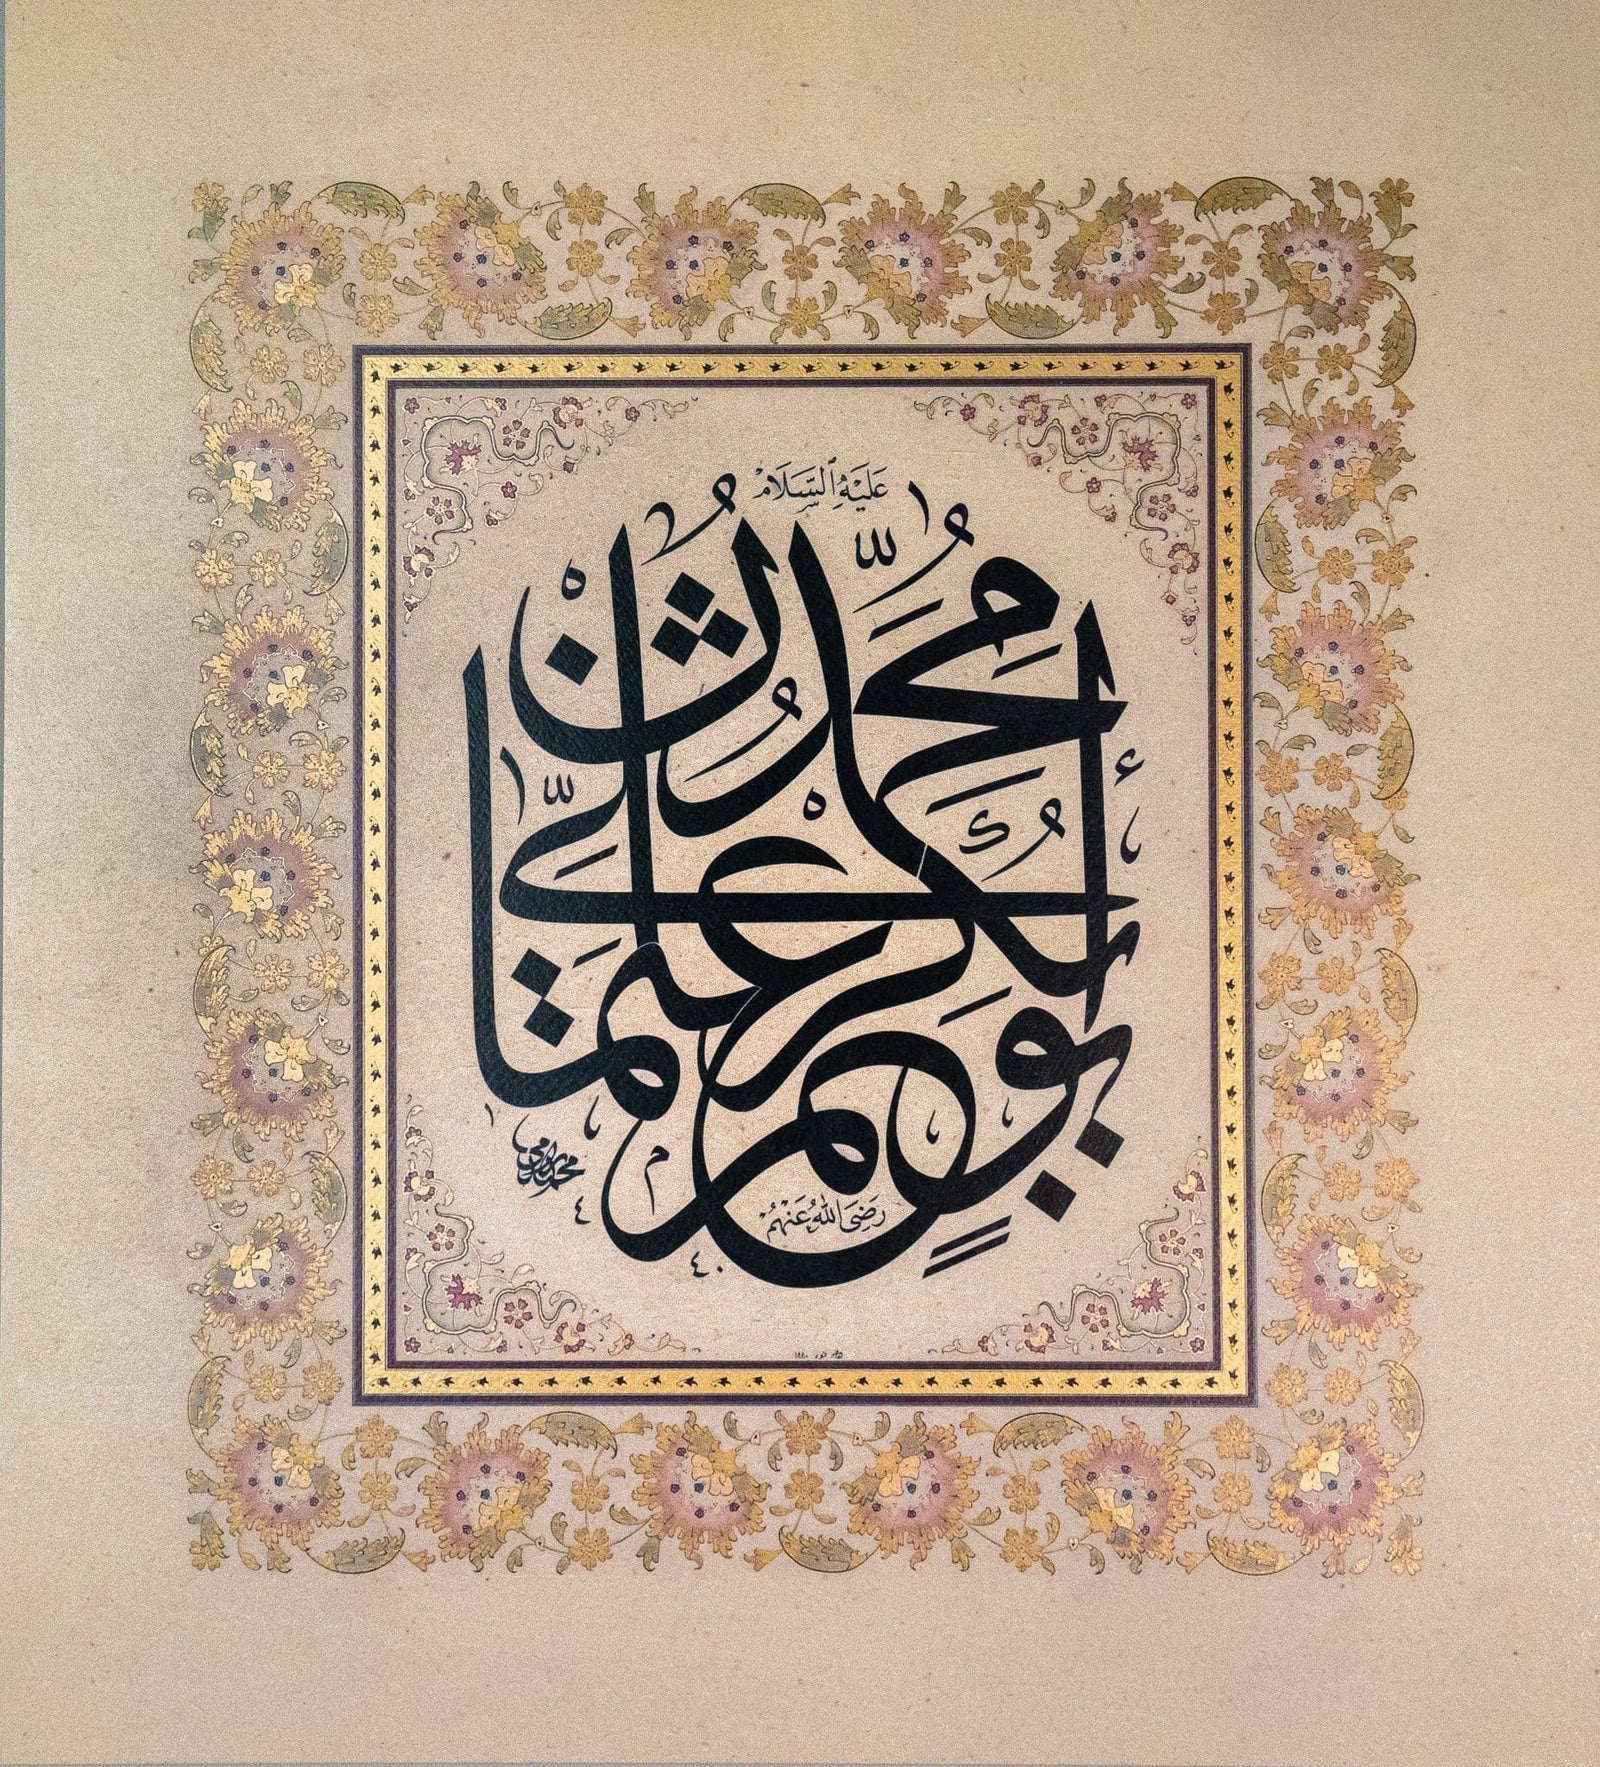 عَلَيْهِ ٱلسَّلَامْ
مُحَمَّد
ابو بكر
عمر
عثمان
على
رَضِىَ اللّٰهُ عَنْهُمْ